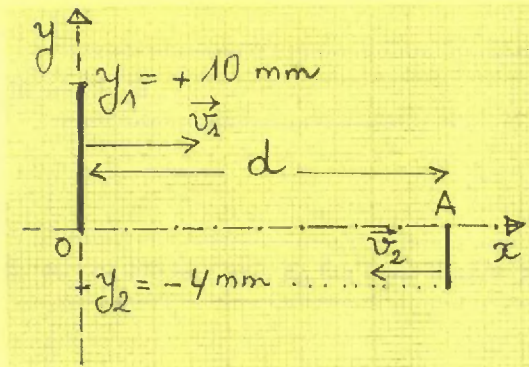 y
y₁ = + 10 mm
v₁
d
A
O
v₂
x
y₂ = - 4 mm